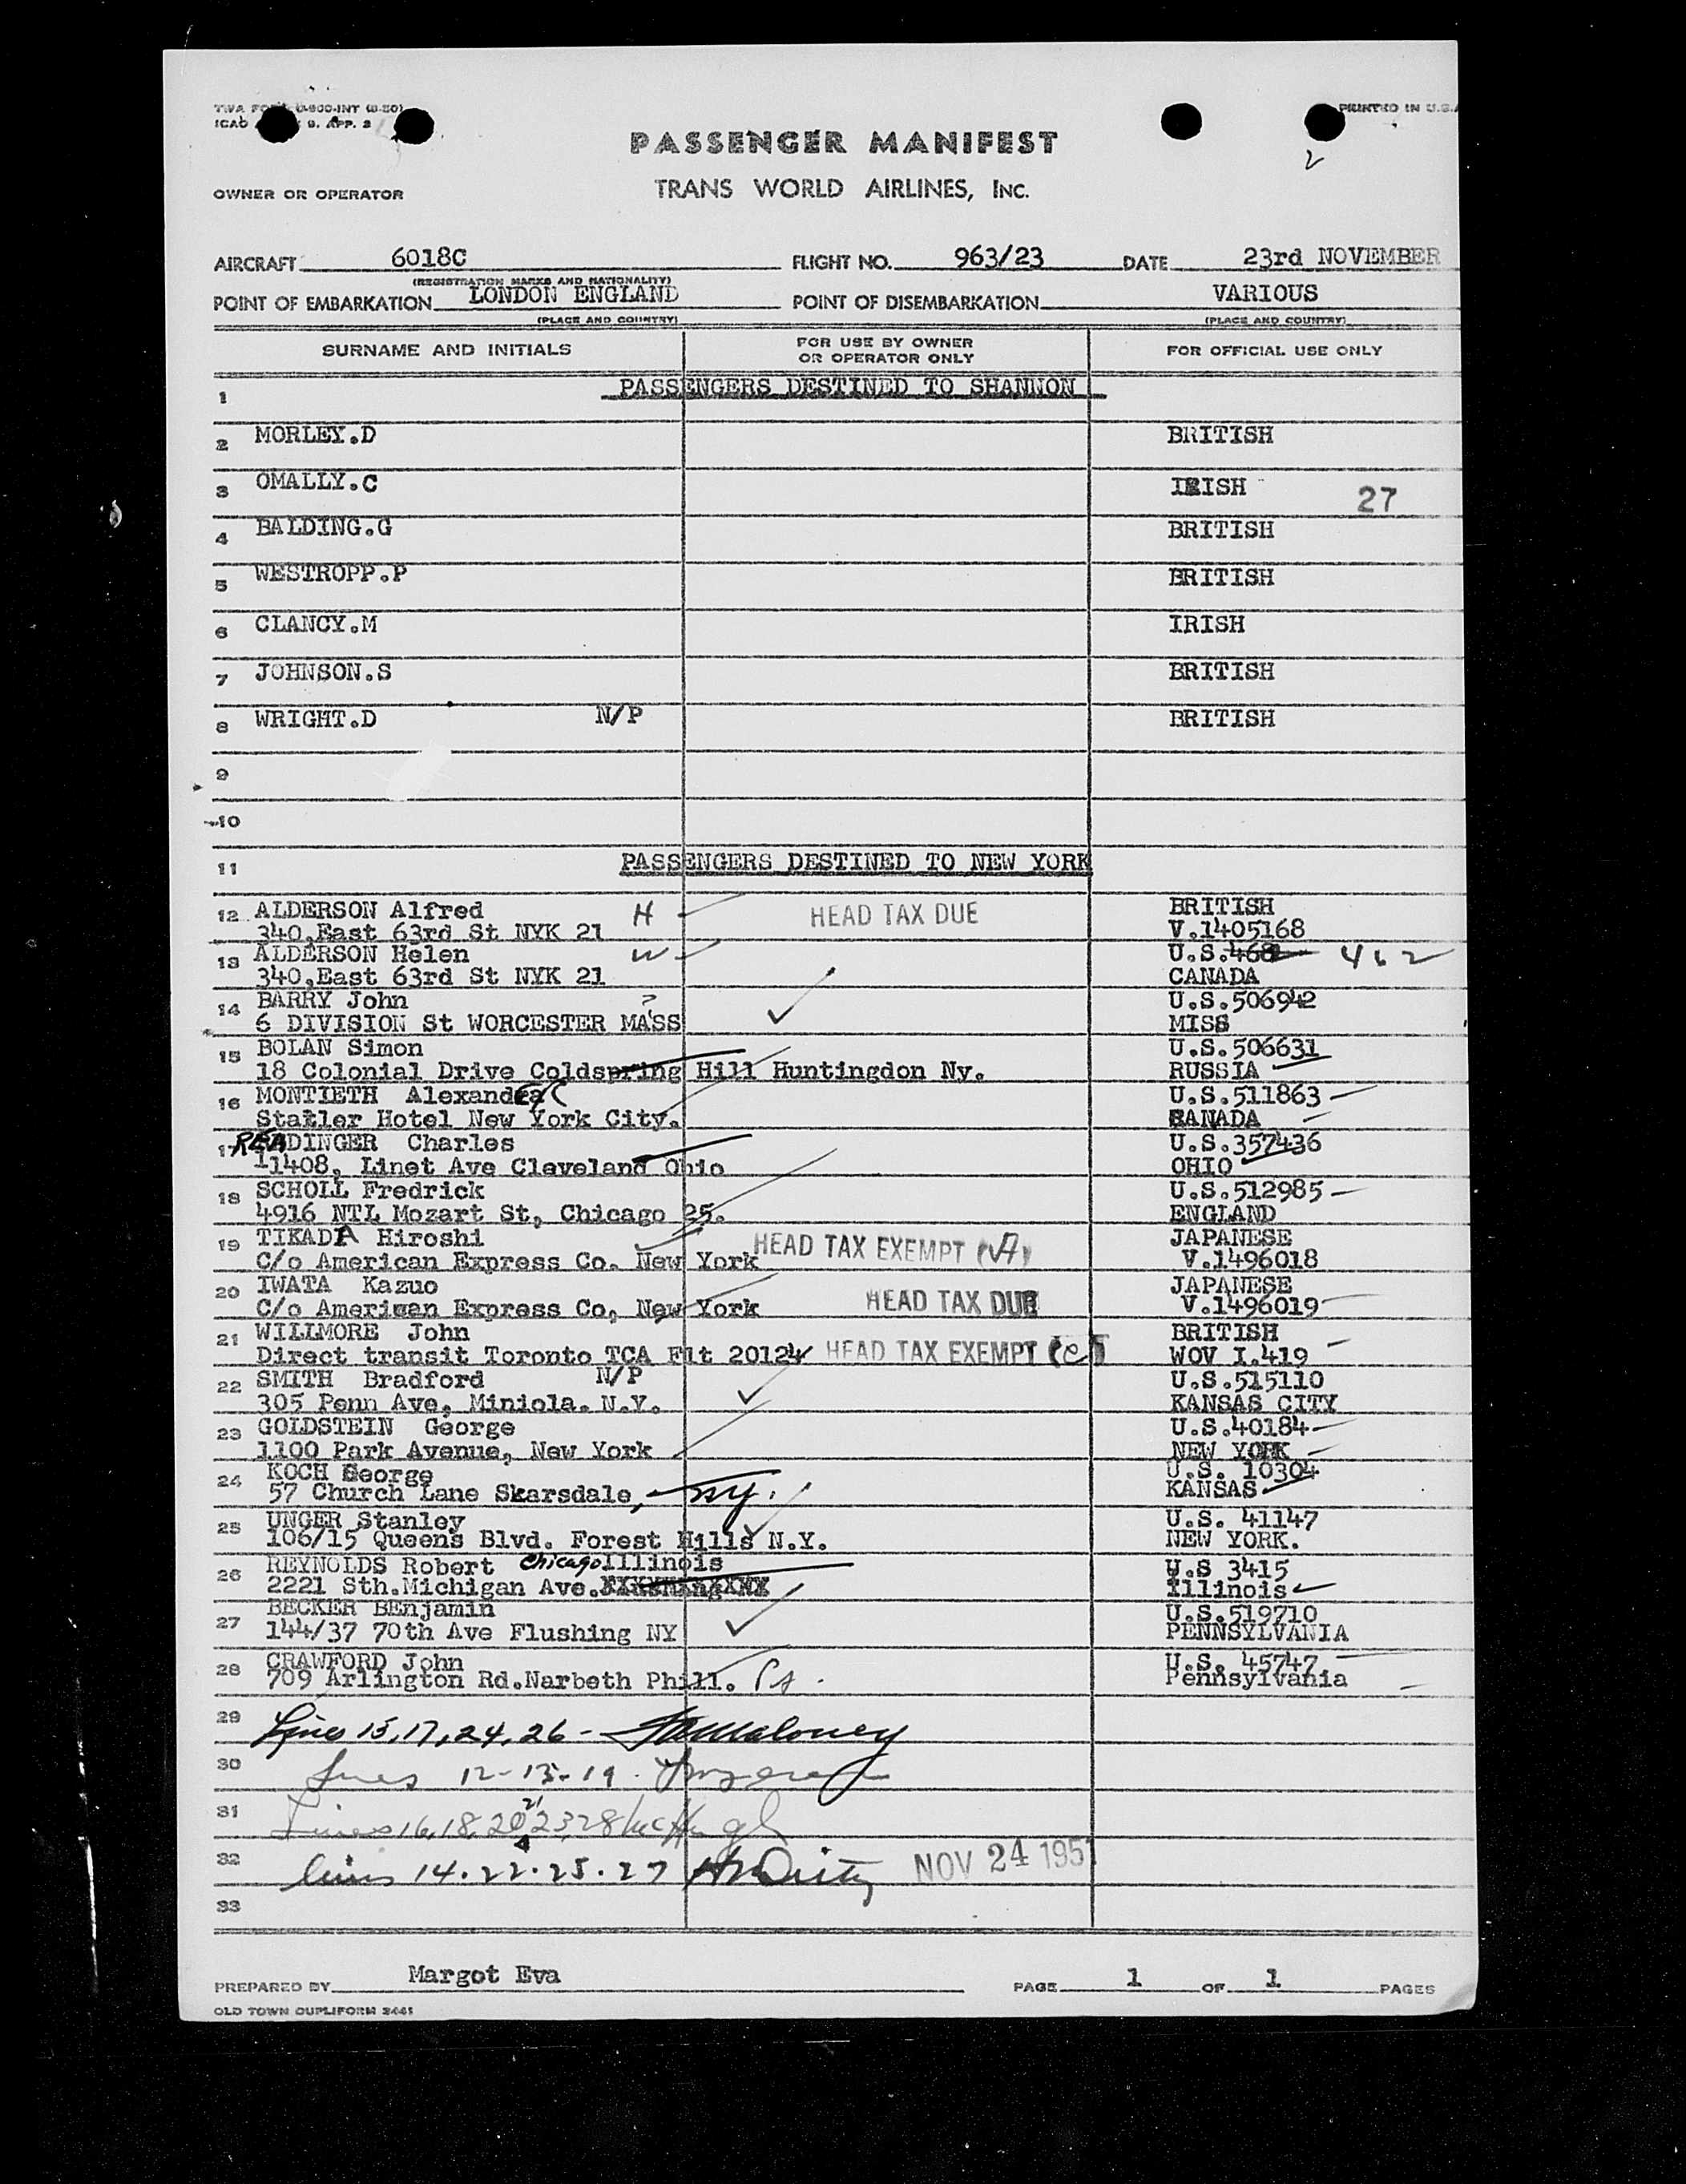 TWA FO 0-800-INT (8-50)
ICAO 9. APP. 2
PRINTED IN U.S.A
2
PASSENGER MANIFEST
OWNER OR OPERATOR
TRANS WORLD AIRLINES, INC.
AIRCRAFT 6018C FLIGHT NO. 963/23 DATE 23rd NOVEMBER
(REGISTRATION MARKS AND NATIONALITY)
POINT OF EMBARKATION LONDON ENGLAND POINT OF DISEMBARKATION VARIOUS
(PLACE AND COUNTRY) (PLACE AND COUNTRY)
SURNAME AND INITIALS FOR USE BY OWNER OR OPERATOR ONLY FOR OFFICIAL USE ONLY
1 PASSENGERS DESTINED TO SHANNON
2 MORLEY.D BRITISH
3 OMALLY.C IRISH 27
4 BALDING.G BRITISH
5 WESTROPP.P BRITISH
6 CLANCY.M IRISH
7 JOHNSON.S BRITISH
8 WRIGHT.D N/P BRITISH
9
10
11 PASSENGERS DESTINED TO NEW YORK
12 ALDERSON Alfred H HEAD TAX DUE BRITISH
340,East 63rd St NYK 21 V.1405168
13 ALDERSON Helen W U.S.468 462
340,East 63rd St NYK 21 CANADA
14 BARRY John ? U.S.506942
6 DIVISION St WORCESTER MASS MISS
15 BOLAN Simon U.S.506631
18 Colonial Drive Coldspring Hill Huntingdon Ny. RUSSIA
16 MONTIETH Alexander C U.S.511863
Statler Hotel New York City. CANADA
17 READINGER Charles U.S.357436
11408, Linet Ave Cleveland Ohio OHIO
18 SCHOLL Fredrick U.S.512985
4916 NTL Mozart St, Chicago 25. ENGLAND
19 TIKADA Hiroshi HEAD TAX EXEMPT (A) JAPANESE
C/o American Express Co. New York V.1496018
20 IWATA Kazuo JAPANESE
C/o American Express Co, New York HEAD TAX DUE V.1496019
21 WILLMORE John BRITISH
Direct transit Toronto TCA Flt 20124 HEAD TAX EXEMPT (C) WOV I.419
22 SMITH Bradford N/P U.S.515110
305 Penn Ave, Miniola. N.Y. KANSAS CITY
23 GOLDSTEIN George U.S.40184
1100 Park Avenue, New York NEW YORK
24 KOCH George U.S. 10304
57 Church Lane Skarsdale, NY. KANSAS
25 UNGER Stanley U.S. 41147
106/15 Queens Blvd. Forest Hills N.Y. NEW YORK.
26 REYNOLDS Robert Chicago Illinois U.S 3415
2221 Sth.Michigan Ave. Illinois
27 BECKER BEnjamin U.S.519710
144/37 70th Ave Flushing NY PENNSYLVANIA
28 CRAWFORD John U.S. 45747
709 Arlington Rd.Narbeth Phill. Pa. Pennsylvania
29 Lines 15, 17, 24, 26 - Maloney
30 Lines 12-13-19.
31 Lines 16, 18, 20 21 23, 28
32 lines 14.22.25.27 NOV 24 1951
33
PREPARED BY Margot Eva PAGE 1 OF 1 PAGES
OLD TOWN DUPLIFORM 2441